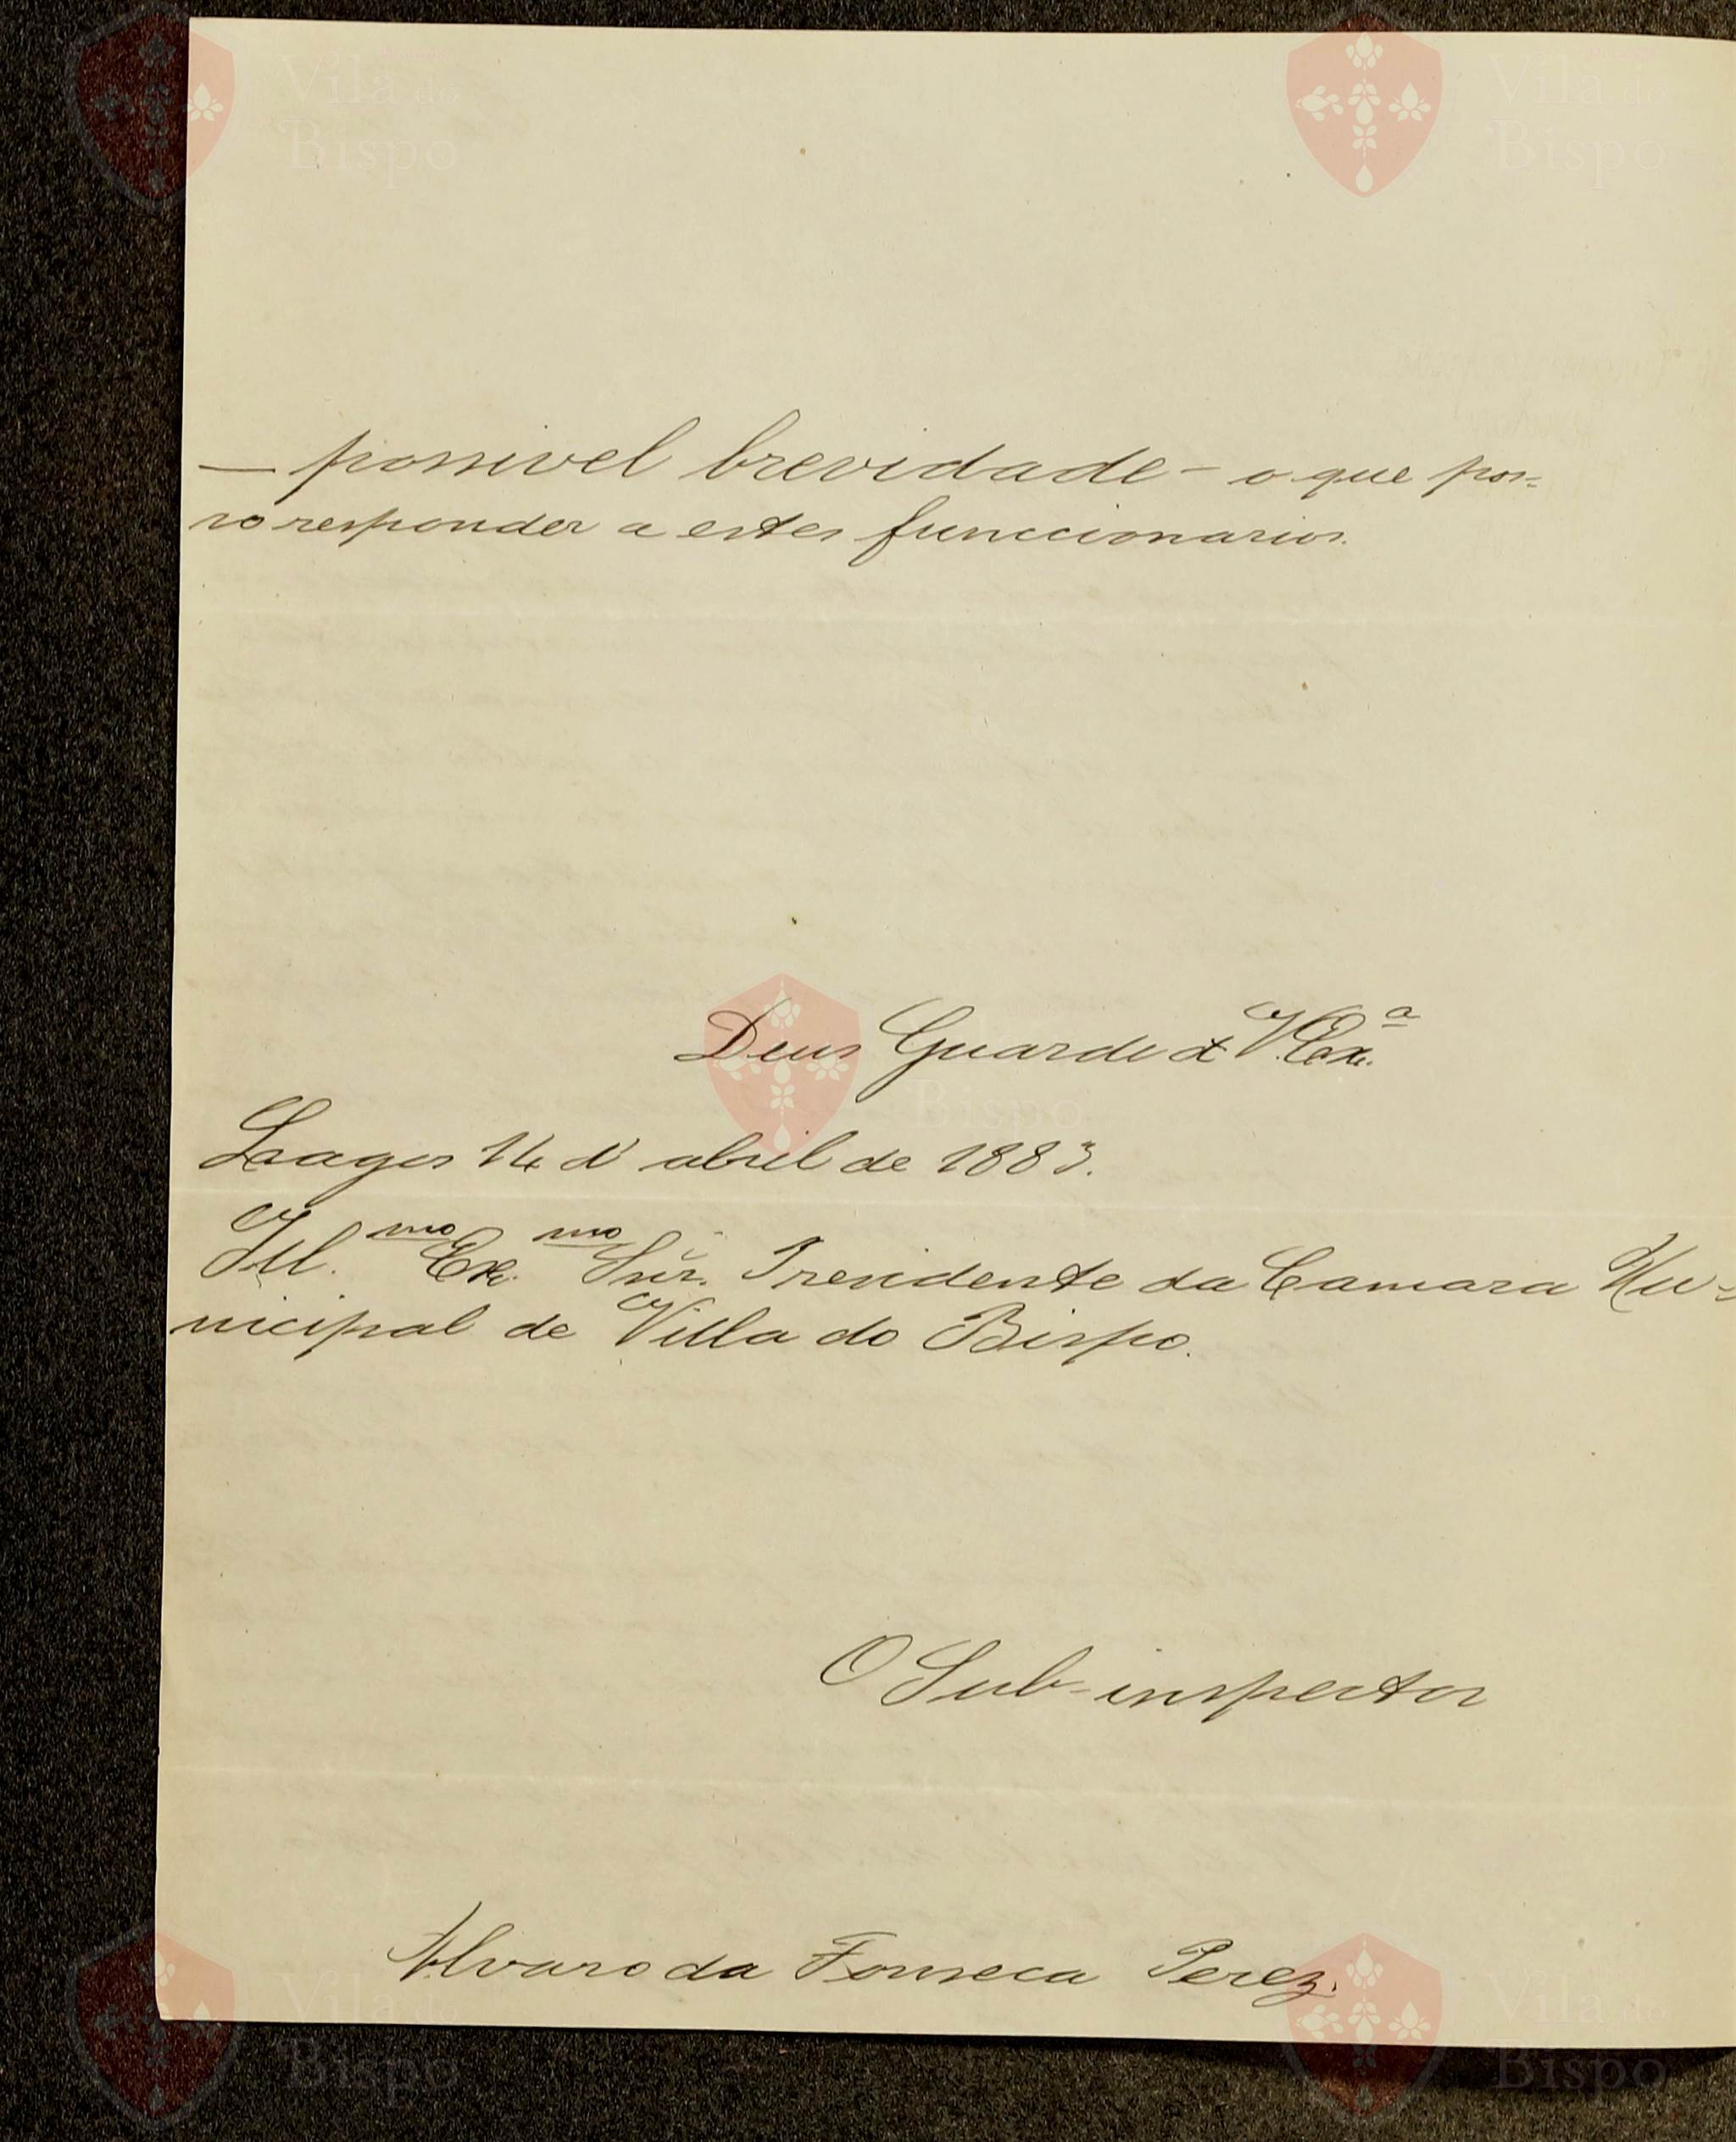 Vila do
Bispo
Vila do
Bispo
— possivel brevidade - o que pos-
so responder a estes funccionarios.
Deus Guarde a V. Ex.ª
Bispo
Laagos 14 d' abril de 1883.
Ill.mo Ex.mo Snr. Presidente da Camara Mu-
nicipal de Villa do Bispo.
O Sub-inspector
Alvaro da Fonseca Perez.
Vila do
Bispo
Vila do
Bispo